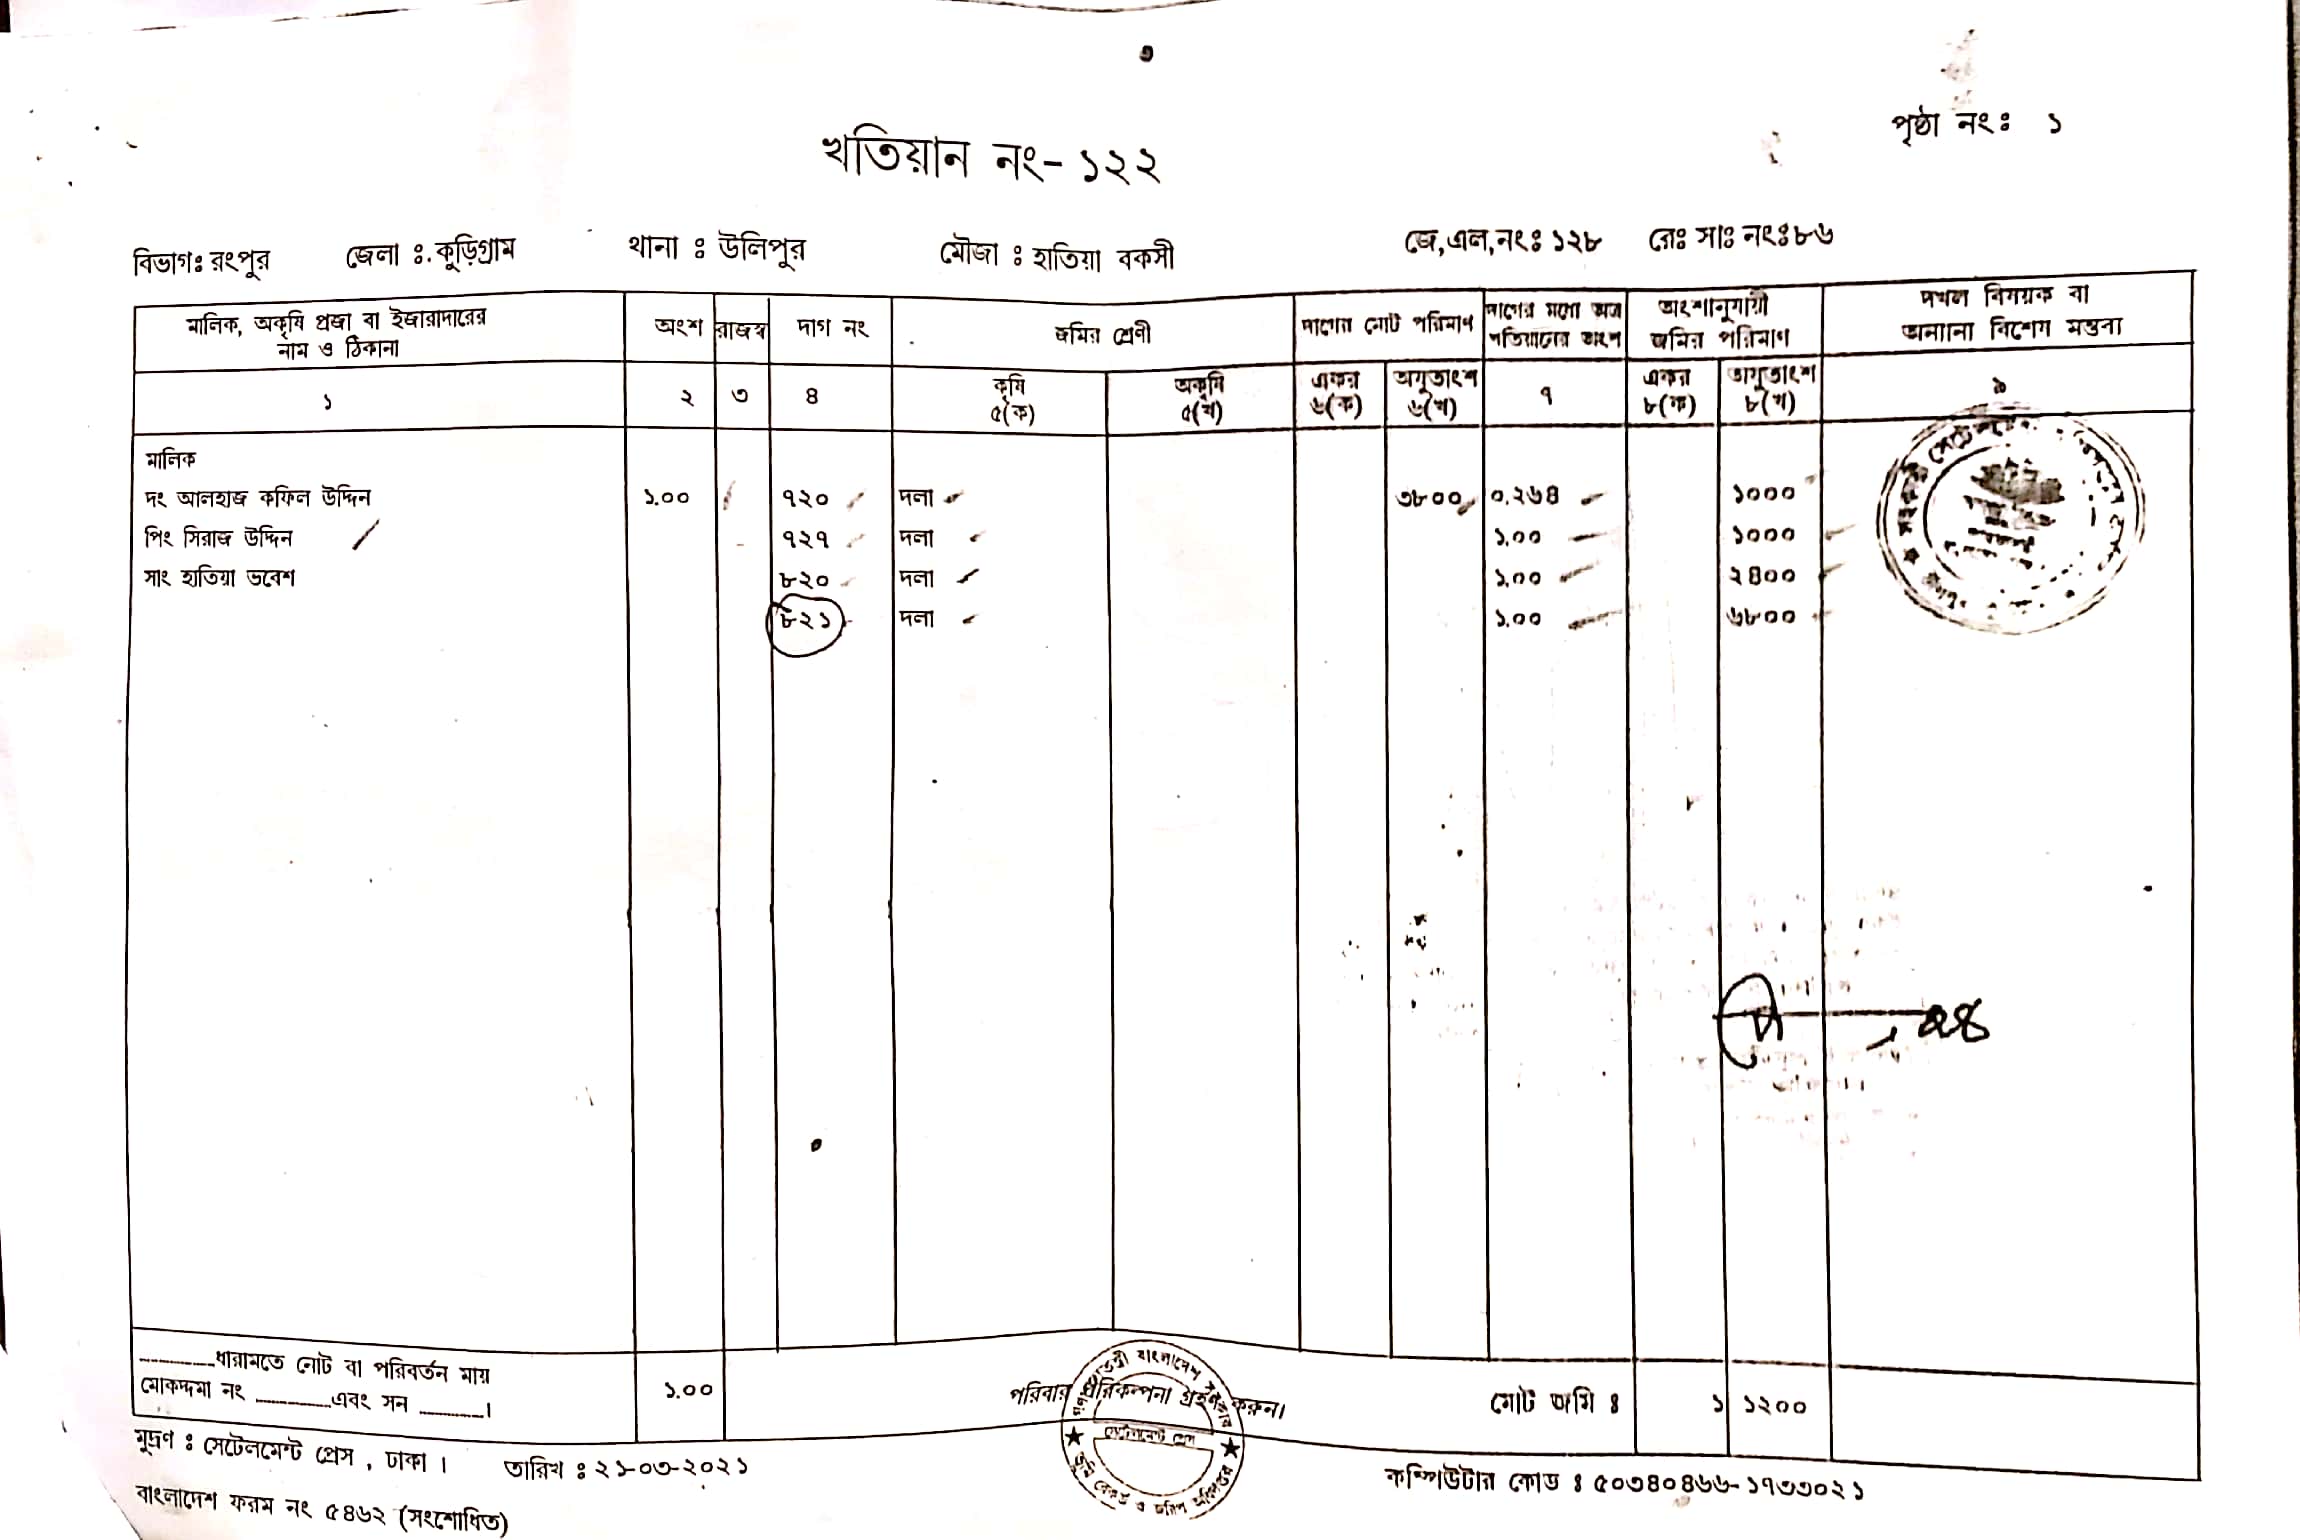 পৃষ্ঠা নং ঃ ১
খতিয়ান নং- ১২২
বিভাগঃ রংপুর জেলা ঃ কুড়িগ্রাম থানা ঃ উলিপুর মৌজা ঃ হাতিয়া বকসী জে,এল,নংঃ ১২৮ রেঃ সাঃ নংঃ ৮৬
মালিক, অকৃষি প্রজা বা ইজারাদারের নাম ও ঠিকানা অংশ রাজস্ব দাগ নং জমির শ্রেণী দাগের মোট পরিমাণ দাগের মধ্যে অত্র খতিয়ানের অংশ অংশানুযায়ী জমির পরিমাণ দখল বিষয়ক বা অন্যান্য বিশেষ মন্তব্য
কৃষি অকৃষি একর অযুতাংশ একর অযুতাংশ
১ ২ ৩ ৪ ৫(ক) ৫(খ) ৬(ক) ৬(খ) ৭ ৮(ক) ৮(খ) ৯
মালিক
দং আলহাজ কফিল উদ্দিন ১.০০ ৭২০ দলা ৩৮০০ ০.২৬৪ ১০০০
পিং সিরাজ উদ্দিন ৭২৭ দলা ১.০০ ১০০০
সাং হাতিয়া ভবেশ ৮২০ দলা ১.০০ ২৪০০
৮২১ দলা ১.০০ ৬৮০০
..........ধারামতে নোট বা পরিবর্তন মায়
মোকদ্দমা নং ..........এবং সন ..........। ১.০০ পরিবার পরিকল্পনা গ্রহন করুন। মোট জমি ঃ ১ ১২০০
মুদ্রণ ঃ সেটেলমেন্ট প্রেস , ঢাকা । তারিখ ঃ ২১-০৩-২০২১
কম্পিউটার কোড ঃ ৫০৩৪০৪৬৬-১৭৩৩০২১
বাংলাদেশ ফরম নং ৫৪৬২ (সংশোধিত)